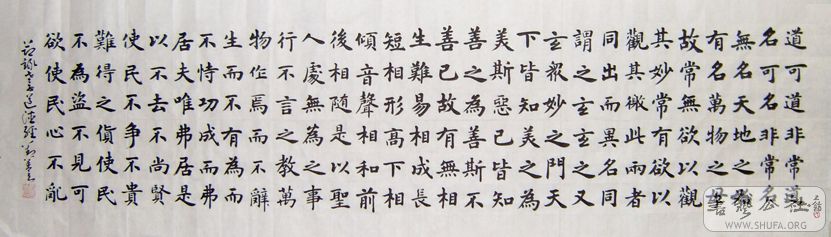 道可道非常道
名可名非常名
無名天地之始
有名萬物之母
故常無欲以觀
其妙常有欲以
觀其徼此兩者
同出而異名同
謂之玄玄之又
玄衆妙之門天
下皆知美之為
美斯惡已皆知
善之為善斯不
善已故有無相
生難易相成長
短相形高下相
傾音聲相和前
後相隨是以聖
人處無為之事
行不言之教萬
物作焉而不辭
生而不有為而
不恃功成而弗
居夫唯弗居是
以不去不尚賢
使民不爭不貴
難得之貨使民
不為盜不見可
欲使民心不亂
節錄老子道德經
WWW.SHUFA.ORG